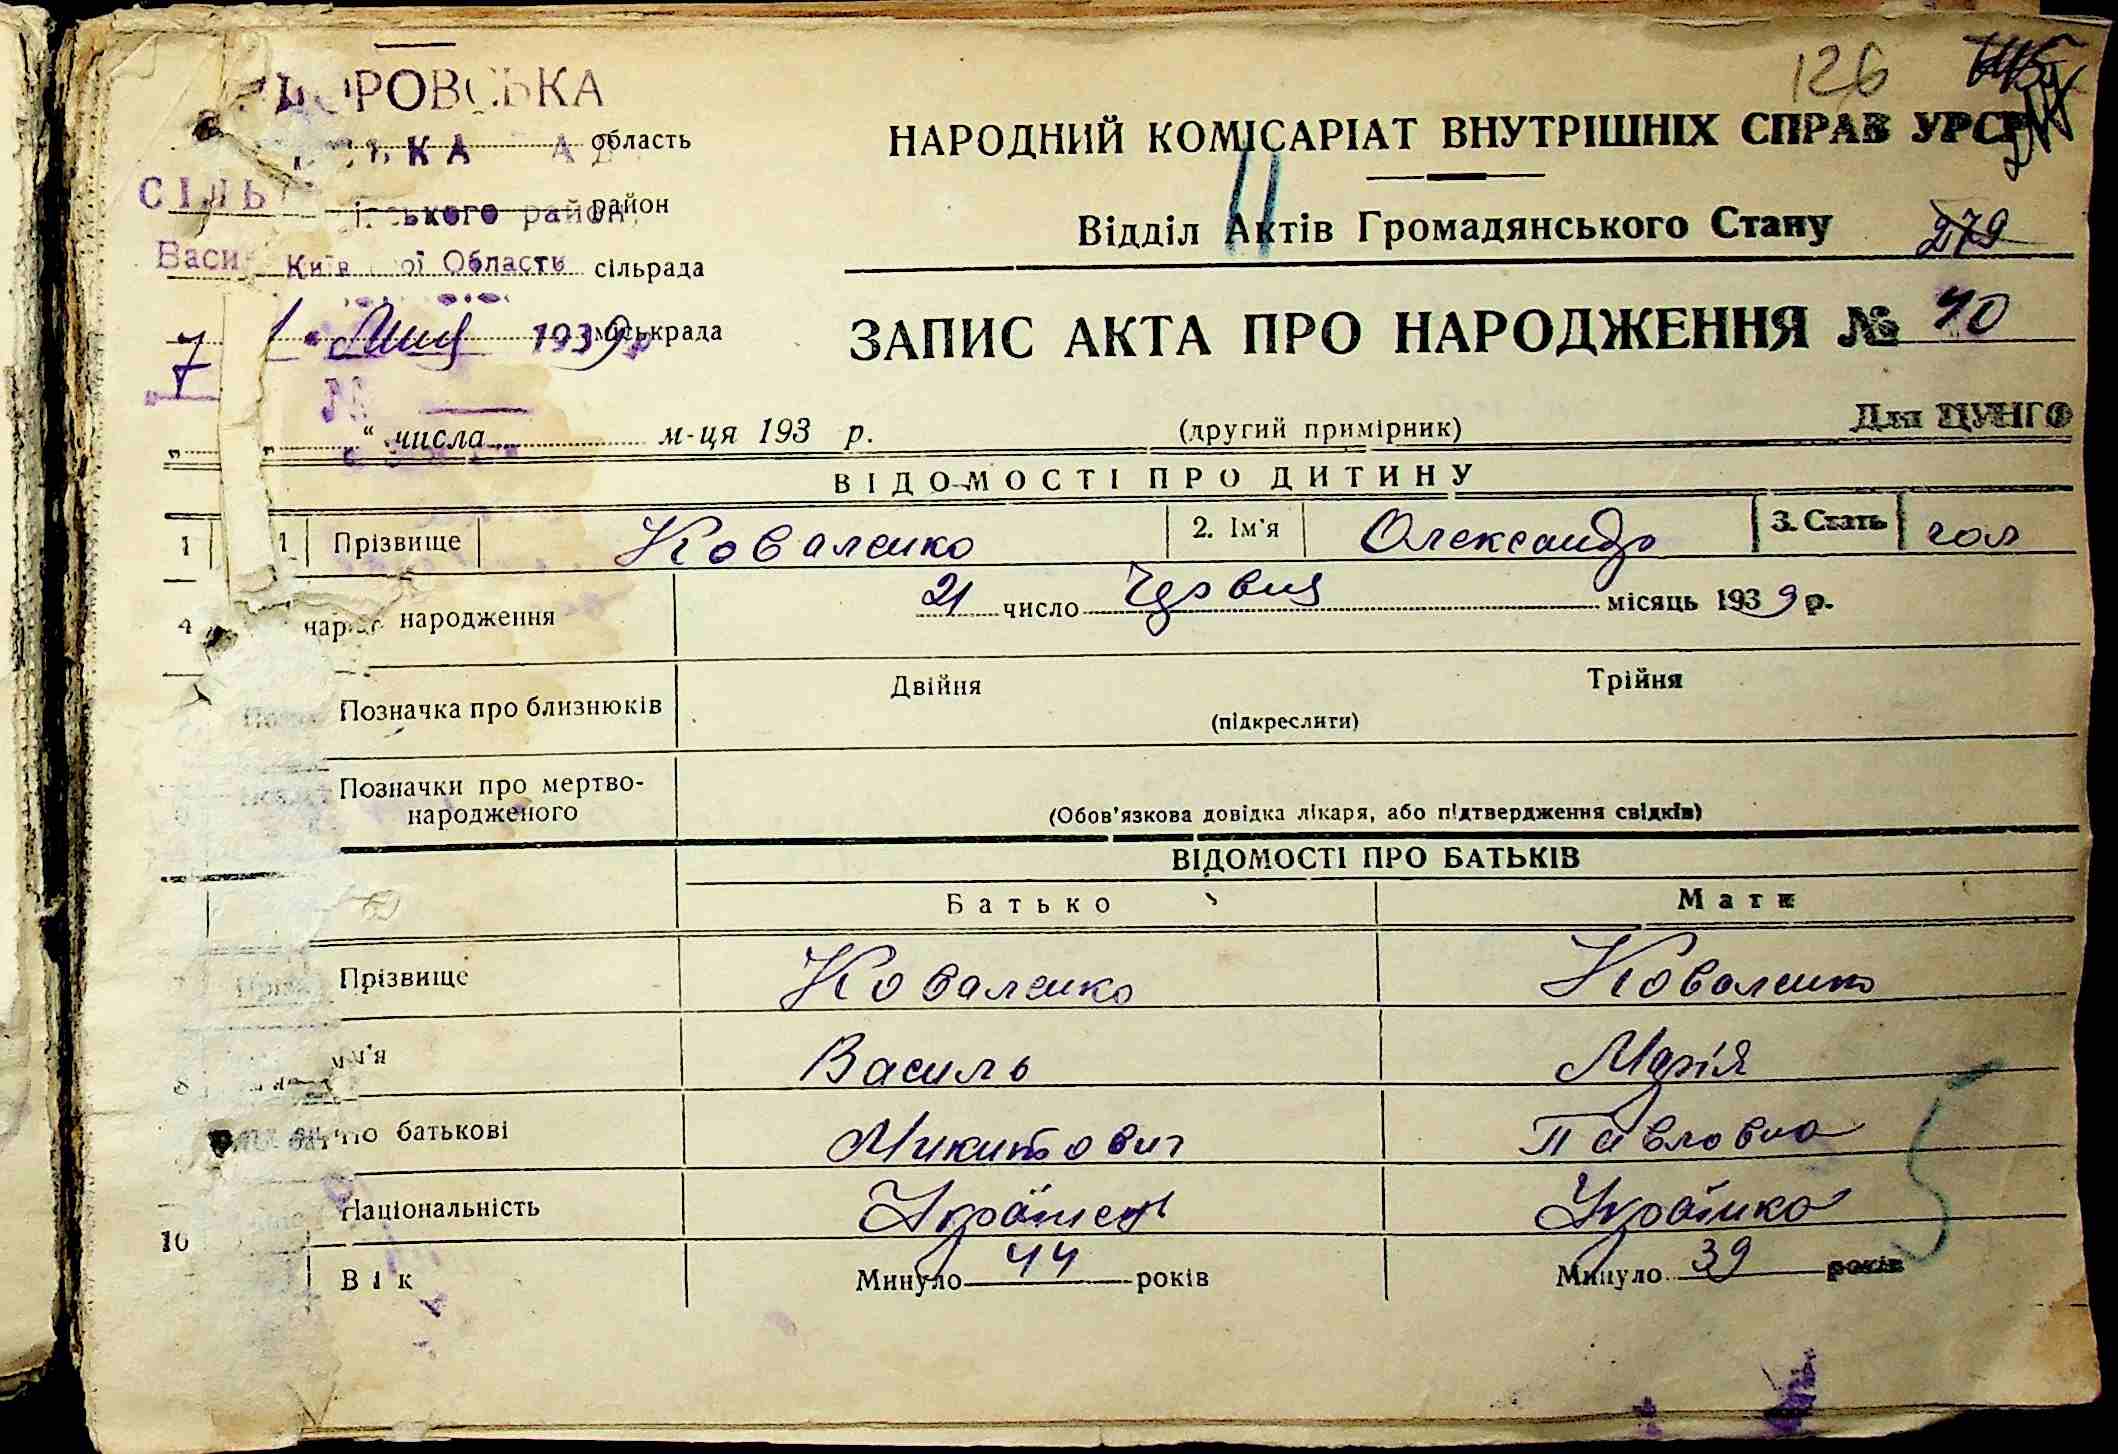 126
область
НАРОДНИЙ КОМІСАРІАТ ВНУТРІШНІХ СПРАВ УРСР
СІЛЬ
ського район
район
Відділ Актів Громадянського Стану
279
Васи Київ ої Область сільрада
7 1939 міськрада
ЗАПИС АКТА ПРО НАРОДЖЕННЯ № 40
„ “ числа м-ця 193 р.
(другий примірник)
Для ЦУНГО
ВІДОМОСТІ ПРО ДИТИНУ
1 Прізвище Коваленко 2. Ім'я Олександр 3. Стать чол
4 народження 21 число Червня місяць 1939 р.
Позначка про близнюків Двійня Трійня
(підкреслити)
Позначки про мертво-
народженого
(Обов'язкова довідка лікаря, або підтвердження свідків)
ВІДОМОСТІ ПРО БАТЬКІВ
Батько Мати
Прізвище Коваленко Коваленко
8 м'я Василь Марія
По батькові Микитович Павловна
Національність Українець Українка
10
Вік Минуло 44 років Минуло 39 років
5